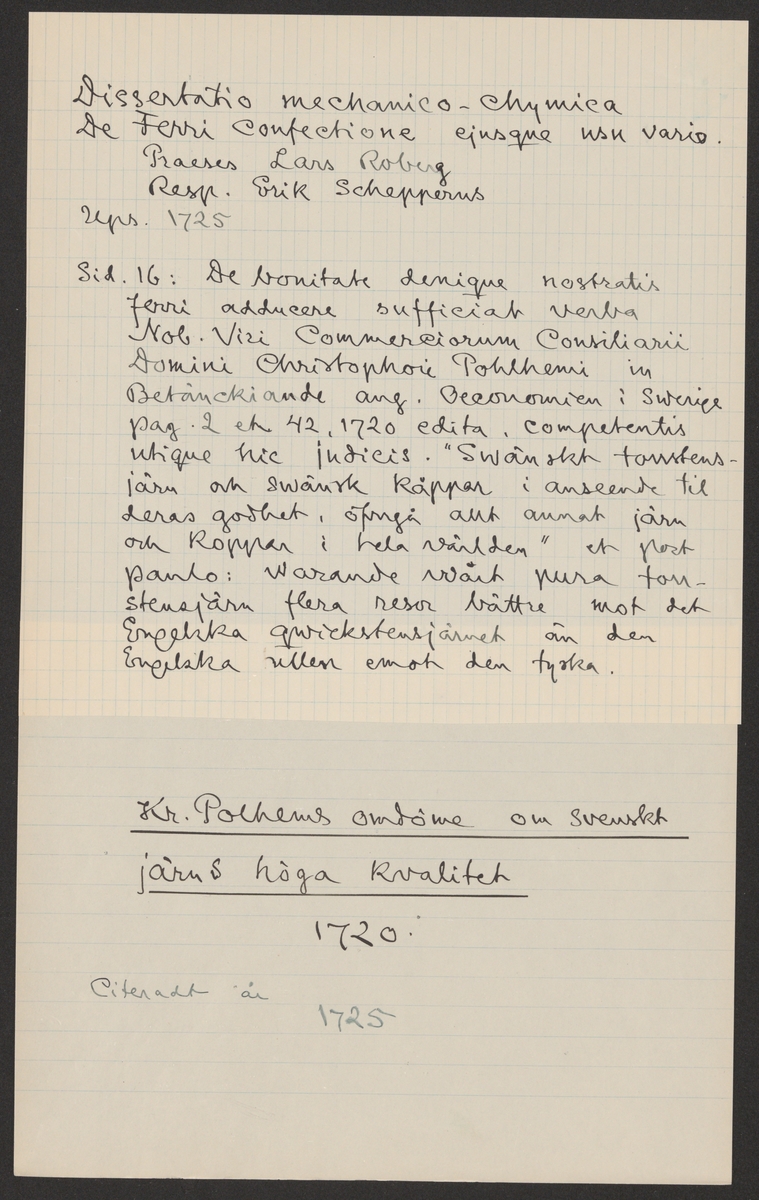 Dissertatio mechanico-chymica
De Ferri Confectione ejusque usu vario.
Praeses Lars Roberg
Resp. Erik Schepperus
Ups. 1725
Sid. 16: De bonitate denique nostratis
ferri adducere sufficiat verba
Nob. Viri Commerciorum Consiliarii
Domini Christophori Polhhemi in
Betänckiande ang. Oeconomien i Swerige
pag. 2 et 42, 1720 edita, competentis
utique hic judicis. "Swänskt torrstens-
järn och swänsk kåppar i anseende til
deras godhet, öfwgå alt annat järn
och Koppar i hela världen" et post
paulo: Warande wårt pura torr-
stensjärn flera resor bättre mot det
Engelska qwickstensjärnet än den
Engelska ullen emot den tyska.
Kr. Polhems omdöme om svenskt
järns höga kvalitet
1720.
Citeradt år
1725